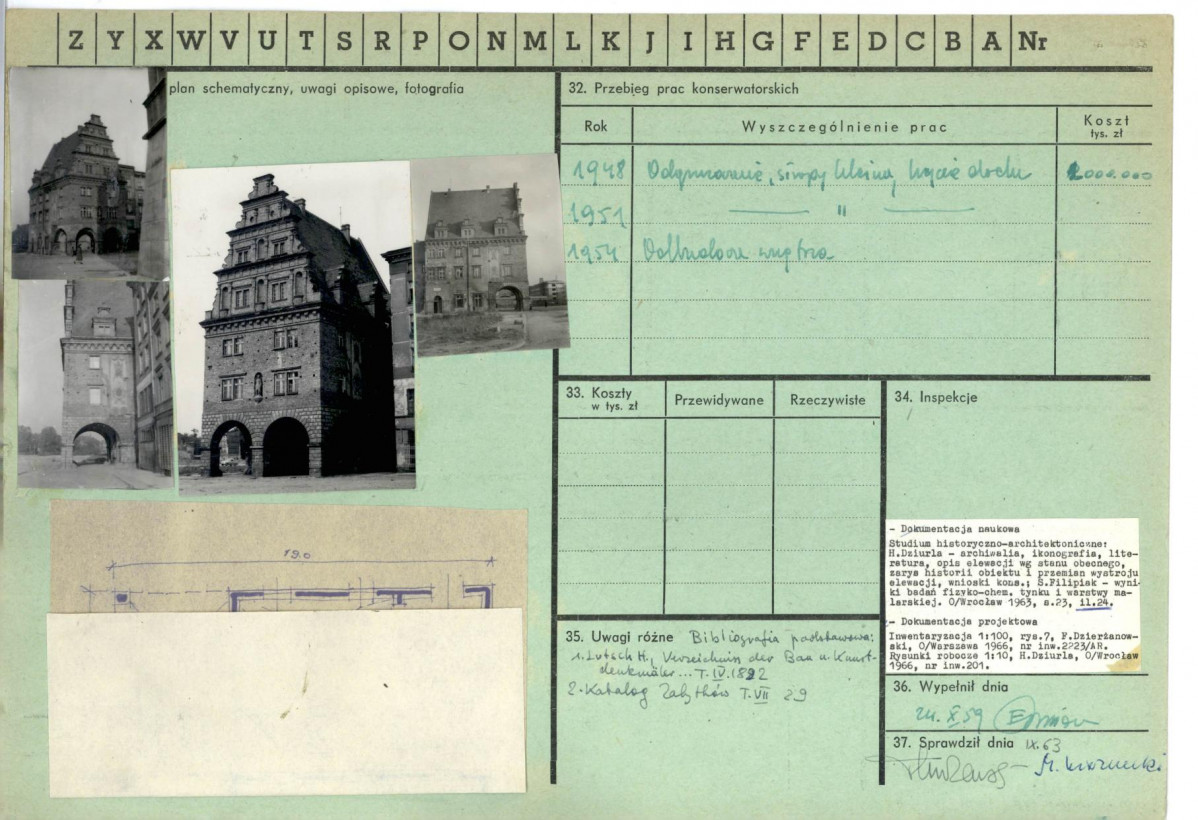 Z Y X W V U T S R P O N M L K J I H G F E D C B A Nr
plan schematyczny, uwagi opisowe, fotografia
19.0
32. Przebieg prac konserwatorskich
Rok
Wyszczególnienie prac
Koszt
tys. zł
1948 Odgruzowanie, stropy Kleina, krycie dachu 2000.000
1951 — " —
1954 Odbudowa wnętrza
33. Koszty
w tys. zł
Przewidywane
Rzeczywiste
34. Inspekcje
- Dokumentacja naukowa
Studium historyczno-architektoniczne:
H.Dziurla - archiwalia, ikonografia, lite-
ratura, opis elewacji wg stanu obecnego,
zarys historii obiektu i przemian wystroju
elewacji, wnioski kons.; S.Filipiak - wyni-
ki badań fizyko-chem. tynku i warstwy ma-
larskiej. O/Wrocław 1963, s.23, il.24.
- Dokumentacja projektowa
Inwentaryzacja 1:100, rys.7, F.Dzierżanow-
ski, O/Warszawa 1966, nr inw.2223/AR.
Rysunki robocze 1:10, H.Dziurla, O/Wrocław
1966, nr inw.201.
35. Uwagi różne Bibliografia podstawowa:
1. Lutsch H., Verzeichnis der Bau u. Kunst-
denkmäler... T. IV. 1892
2. Katalog Zabytków T. VII 29
36. Wypełnił dnia
24. X. 59
37. Sprawdził dnia IX. 63